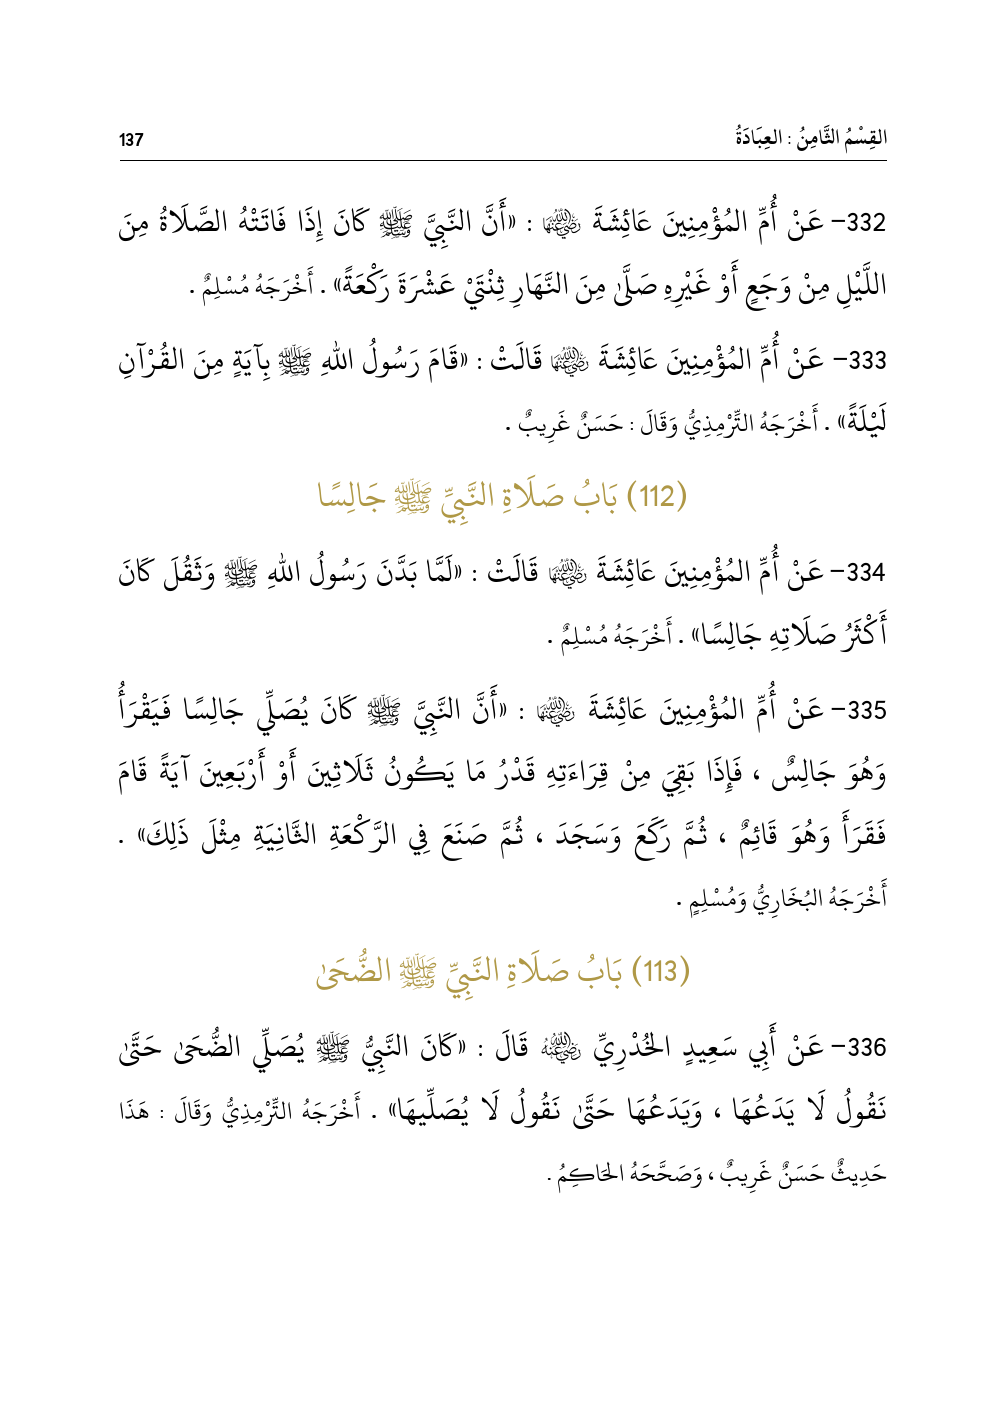 القِسْمُ الثَّامِنُ : العِبَادَةُ 137
332- عَنْ أُمِّ المُؤْمِنِينَ عَائِشَةَ رضي الله عنها : «أَنَّ النَّبِيَّ ﷺ كَانَ إِذَا فَاتَتْهُ الصَّلَاةُ مِنَ
اللَّيْلِ مِنْ وَجَعٍ أَوْ غَيْرِهِ صَلَّىٰ مِنَ النَّهَارِ ثِنْتَيْ عَشْرَةَ رَكْعَةً» . أَخْرَجَهُ مُسْلِمٌ .
333- عَنْ أُمِّ المُؤْمِنِينَ عَائِشَةَ رضي الله عنها قَالَتْ : «قَامَ رَسُولُ اللهِ ﷺ بِآيَةٍ مِنَ القُرْآنِ
لَيْلَةً» . أَخْرَجَهُ التِّرْمِذِيُّ وَقَالَ : حَسَنٌ غَرِيبٌ .
(112) بَابُ صَلَاةِ النَّبِيِّ ﷺ جَالِسًا
334- عَنْ أُمِّ المُؤْمِنِينَ عَائِشَةَ رضي الله عنها قَالَتْ : «لَمَّا بَدَّنَ رَسُولُ اللهِ ﷺ وَثَقُلَ كَانَ
أَكْثَرُ صَلَاتِهِ جَالِسًا» . أَخْرَجَهُ مُسْلِمٌ .
335- عَنْ أُمِّ المُؤْمِنِينَ عَائِشَةَ رضي الله عنها : «أَنَّ النَّبِيَّ ﷺ كَانَ يُصَلِّي جَالِسًا فَيَقْرَأُ
وَهُوَ جَالِسٌ ، فَإِذَا بَقِيَ مِنْ قِرَاءَتِهِ قَدْرُ مَا يَكُونُ ثَلَاثِينَ أَوْ أَرْبَعِينَ آيَةً قَامَ
فَقَرَأَ وَهُوَ قَائِمٌ ، ثُمَّ رَكَعَ وَسَجَدَ ، ثُمَّ صَنَعَ فِي الرَّكْعَةِ الثَّانِيَةِ مِثْلَ ذَلِكَ» .
أَخْرَجَهُ البُخَارِيُّ وَمُسْلِمٍ .
(113) بَابُ صَلَاةِ النَّبِيِّ ﷺ الضُّحَىٰ
336- عَنْ أَبِي سَعِيدٍ الخُدْرِيِّ رضي الله عنه قَالَ : «كَانَ النَّبِيُّ ﷺ يُصَلِّي الضُّحَىٰ حَتَّىٰ
نَقُولُ لَا يَدَعُهَا ، وَيَدَعُهَا حَتَّىٰ نَقُولُ لَا يُصَلِّيهَا» . أَخْرَجَهُ التِّرْمِذِيُّ وَقَالَ : هَذَا
حَدِيثٌ حَسَنٌ غَرِيبٌ ، وَصَحَّحَهُ الحَاكِمُ .